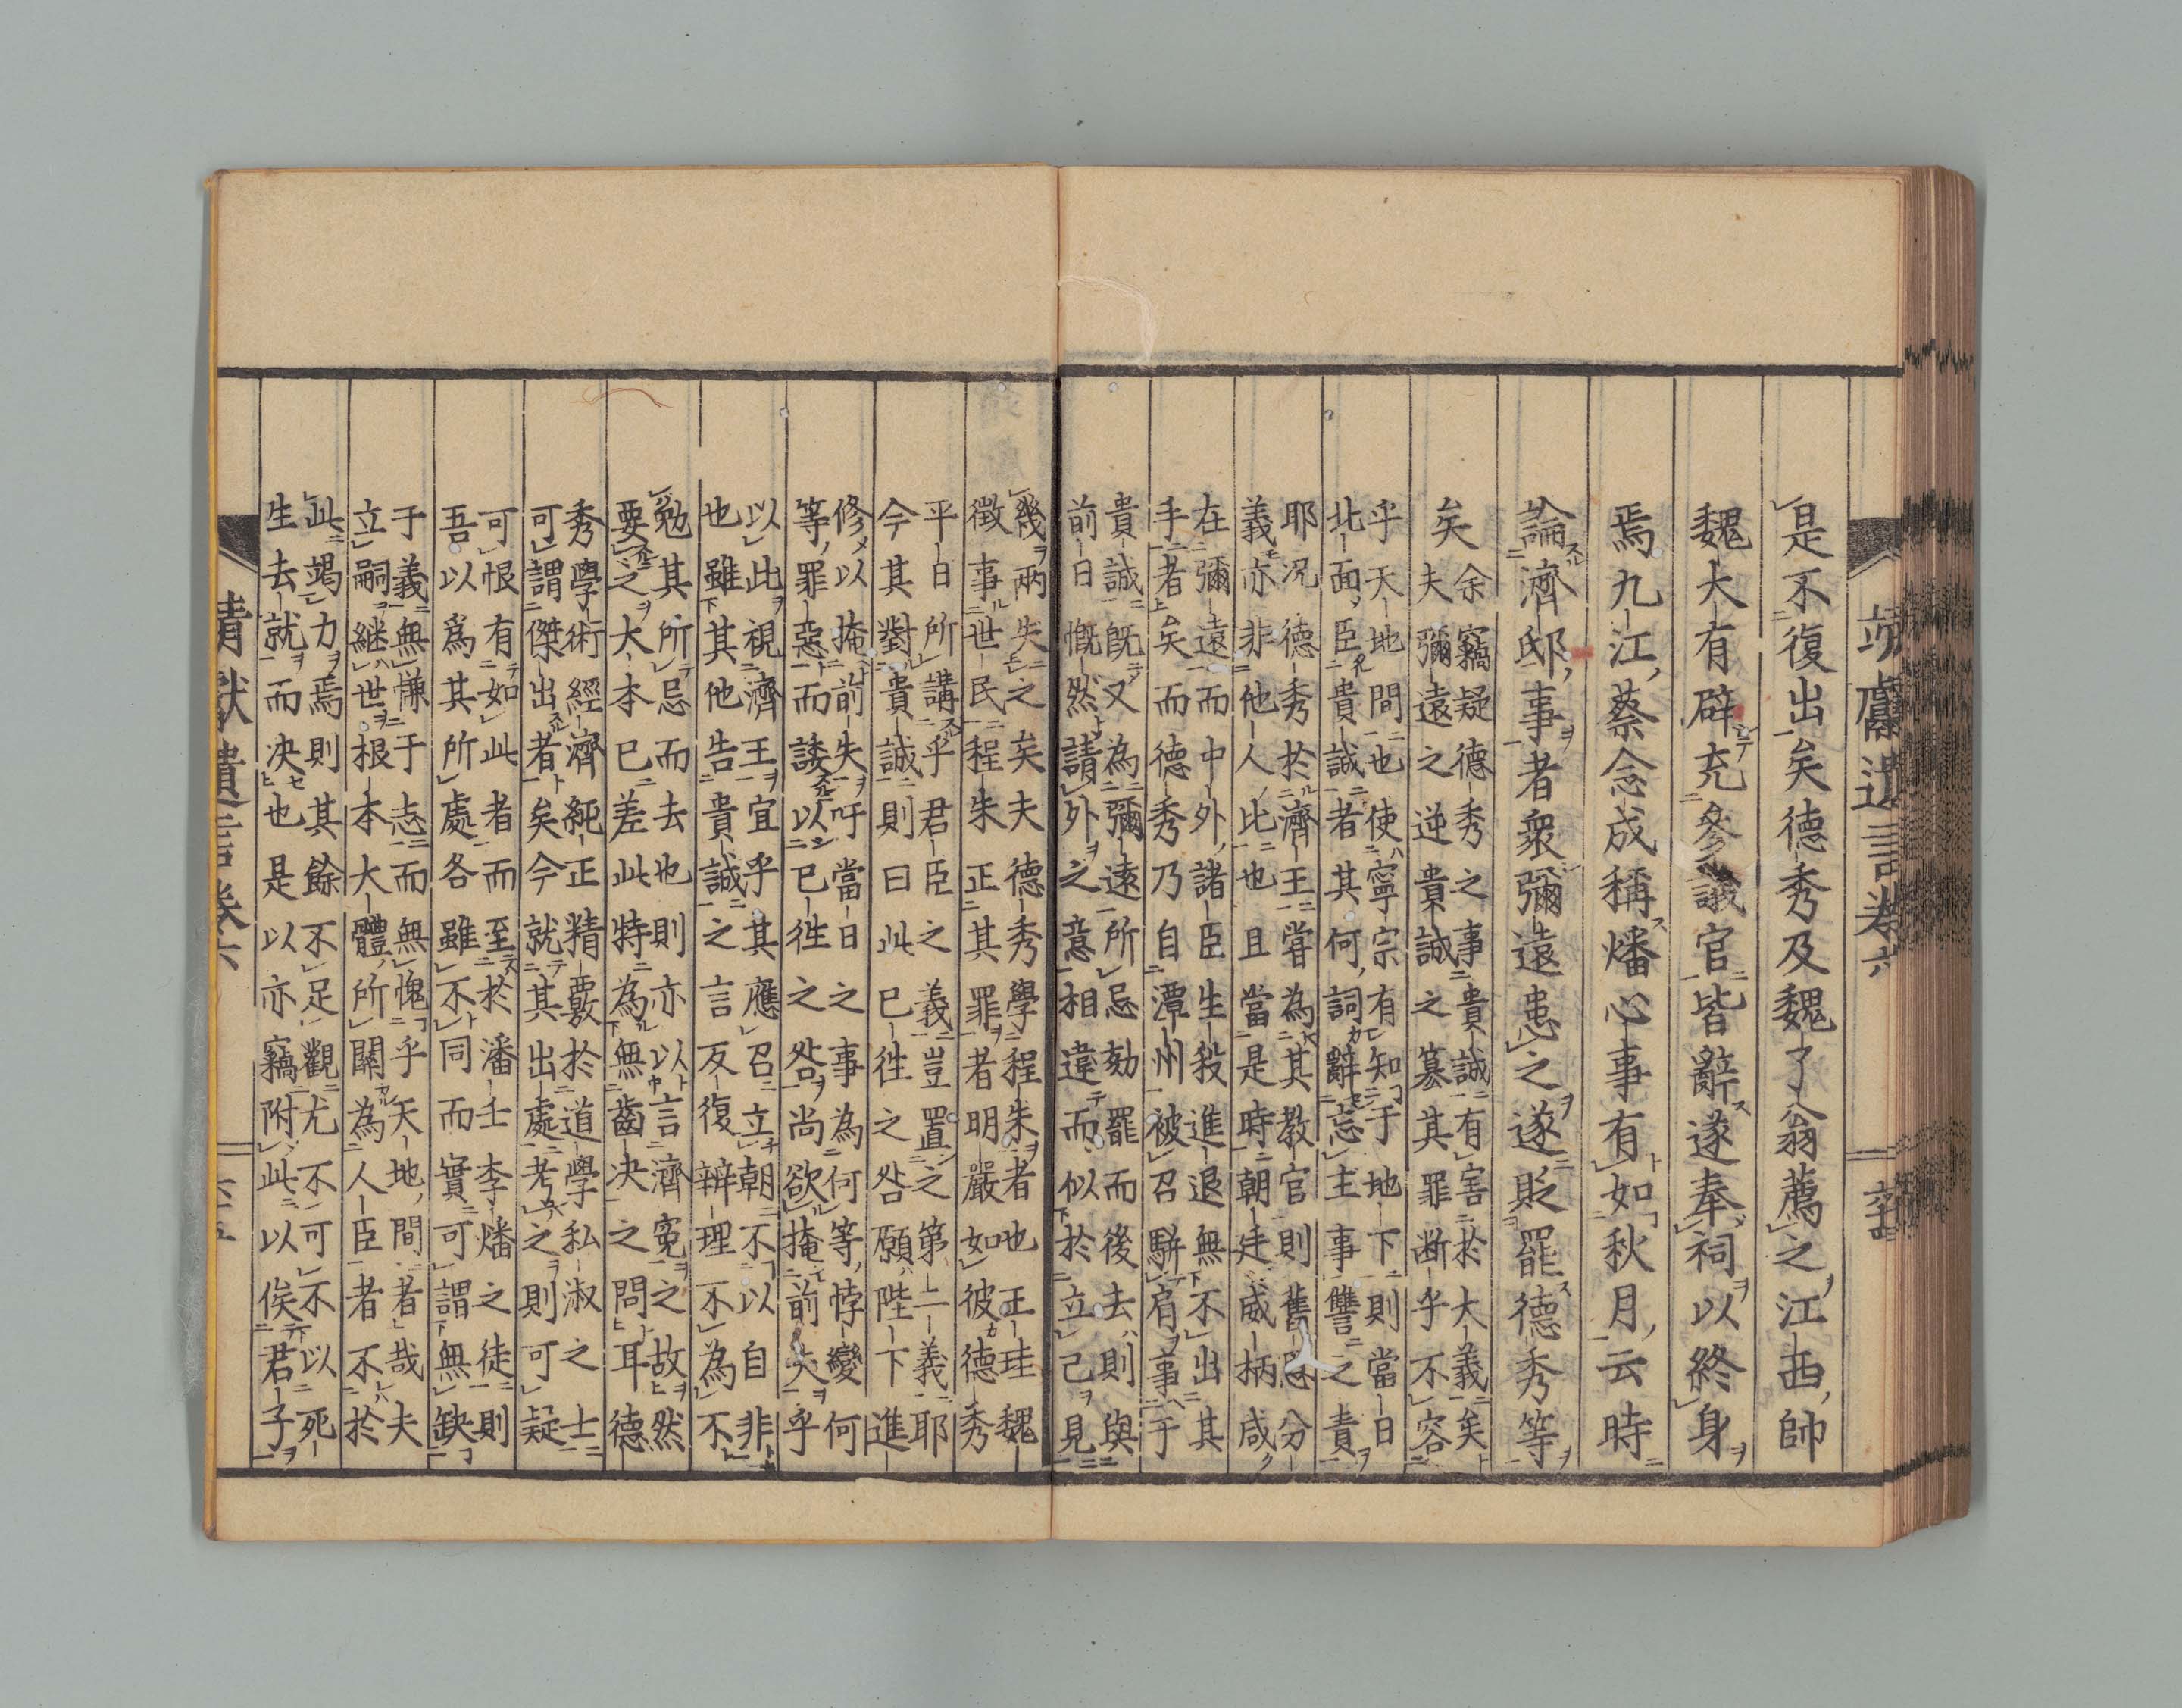 是不復出矣德秀及魏了翁薦之江西帥
魏大有辟充參議官皆辭遂奉祠以終身
焉九江蔡念成稱燔心事有如秋月云時
論濟邸事者衆彌遠患之遂貶罷德秀等
矣
余竊疑德秀之事貴誠有害於大義矣
夫彌遠之逆貴誠之簒其罪断乎不容
乎天地間也使寧宗有知于地下則當日
北面臣貴誠者其何詞辭忘主事讐之責
耶况德秀於濟王嘗為其教官則舊恩分
義亦非他人比也且當是時朝廷威柄咸
在彌遠而中外諸臣生殺進退無不出其
手者矣而德秀乃自潭州被召駢肩事于
貴誠既又為彌遠所忌劾罷而後去則與
前日慨然請外之意相違而似於立己見
幾兩失之矣夫德秀學程朱者也王珪魏
徵事世民程朱正其罪者明嚴如彼德秀
平日所講乎君臣之義豈置之第二義耶
今其對貴誠則曰此已徃之咎願陛下進
修以掩前失吁當日之事為何等悖變何
等罪惡而諉以已徃之咎尚欲掩前失乎
以此視濟王宜乎其應召立朝不以自非
也雖其他告貴誠之言反復辨理不為不
勉其所忌而去也則亦以言濟寃之故然
要之大本已差此特為無齒决之問耳德
秀學術經濟純正精覈於道學私淑之士
可謂傑出者矣今就其出處考之則可疑
可恨有如此者而至於潘壬李燔之徒則
吾以為其所處各雖不同而實可謂無缺
于義無慊于志而無愧乎天地間者哉夫
立嗣継世根本大體所關為人臣者不於
此竭力焉則其餘不足觀尤不可不以死
生去就而决也是以亦竊附此以俟君子